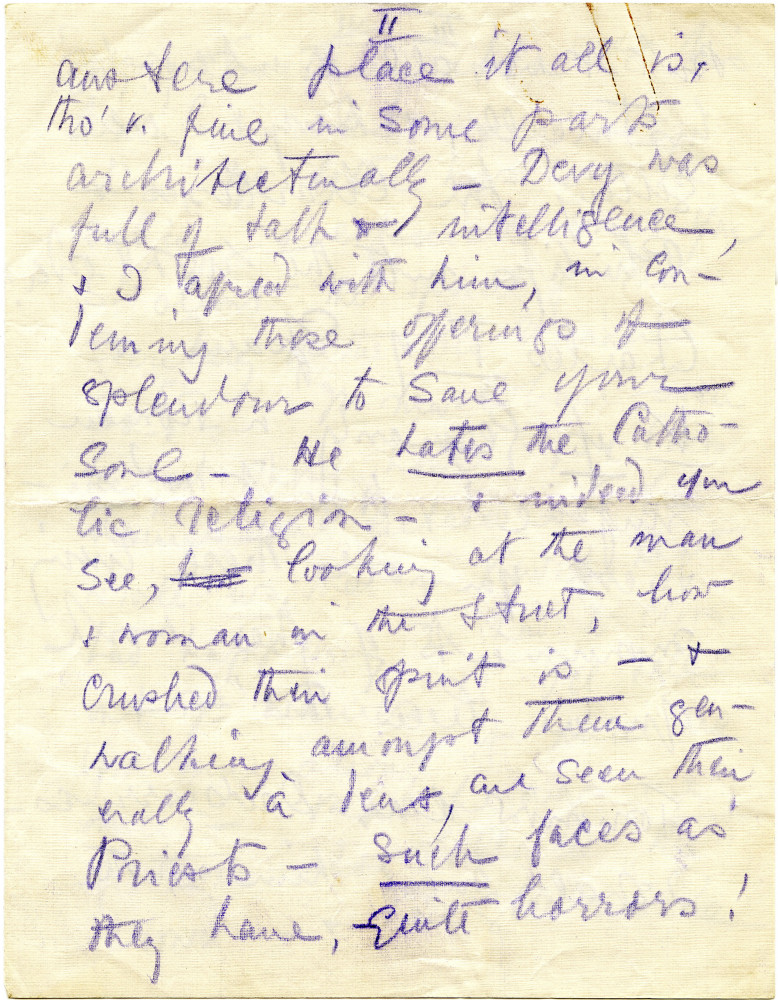 II
austere place it all is,
tho' v. fine in some parts
architecturally — Devy was
full of talk & intelligence,
& I agreed with him, in con-
demning those offerings of
splendour to save your
soul — He hates the Catho-
lic religion — & indeed you
see, looking at the man
& woman in the street, how
crushed their spirit is — &
walking amongst them gen-
erally à deux, are seen their
Priests — such faces as
they have, quite horrors!